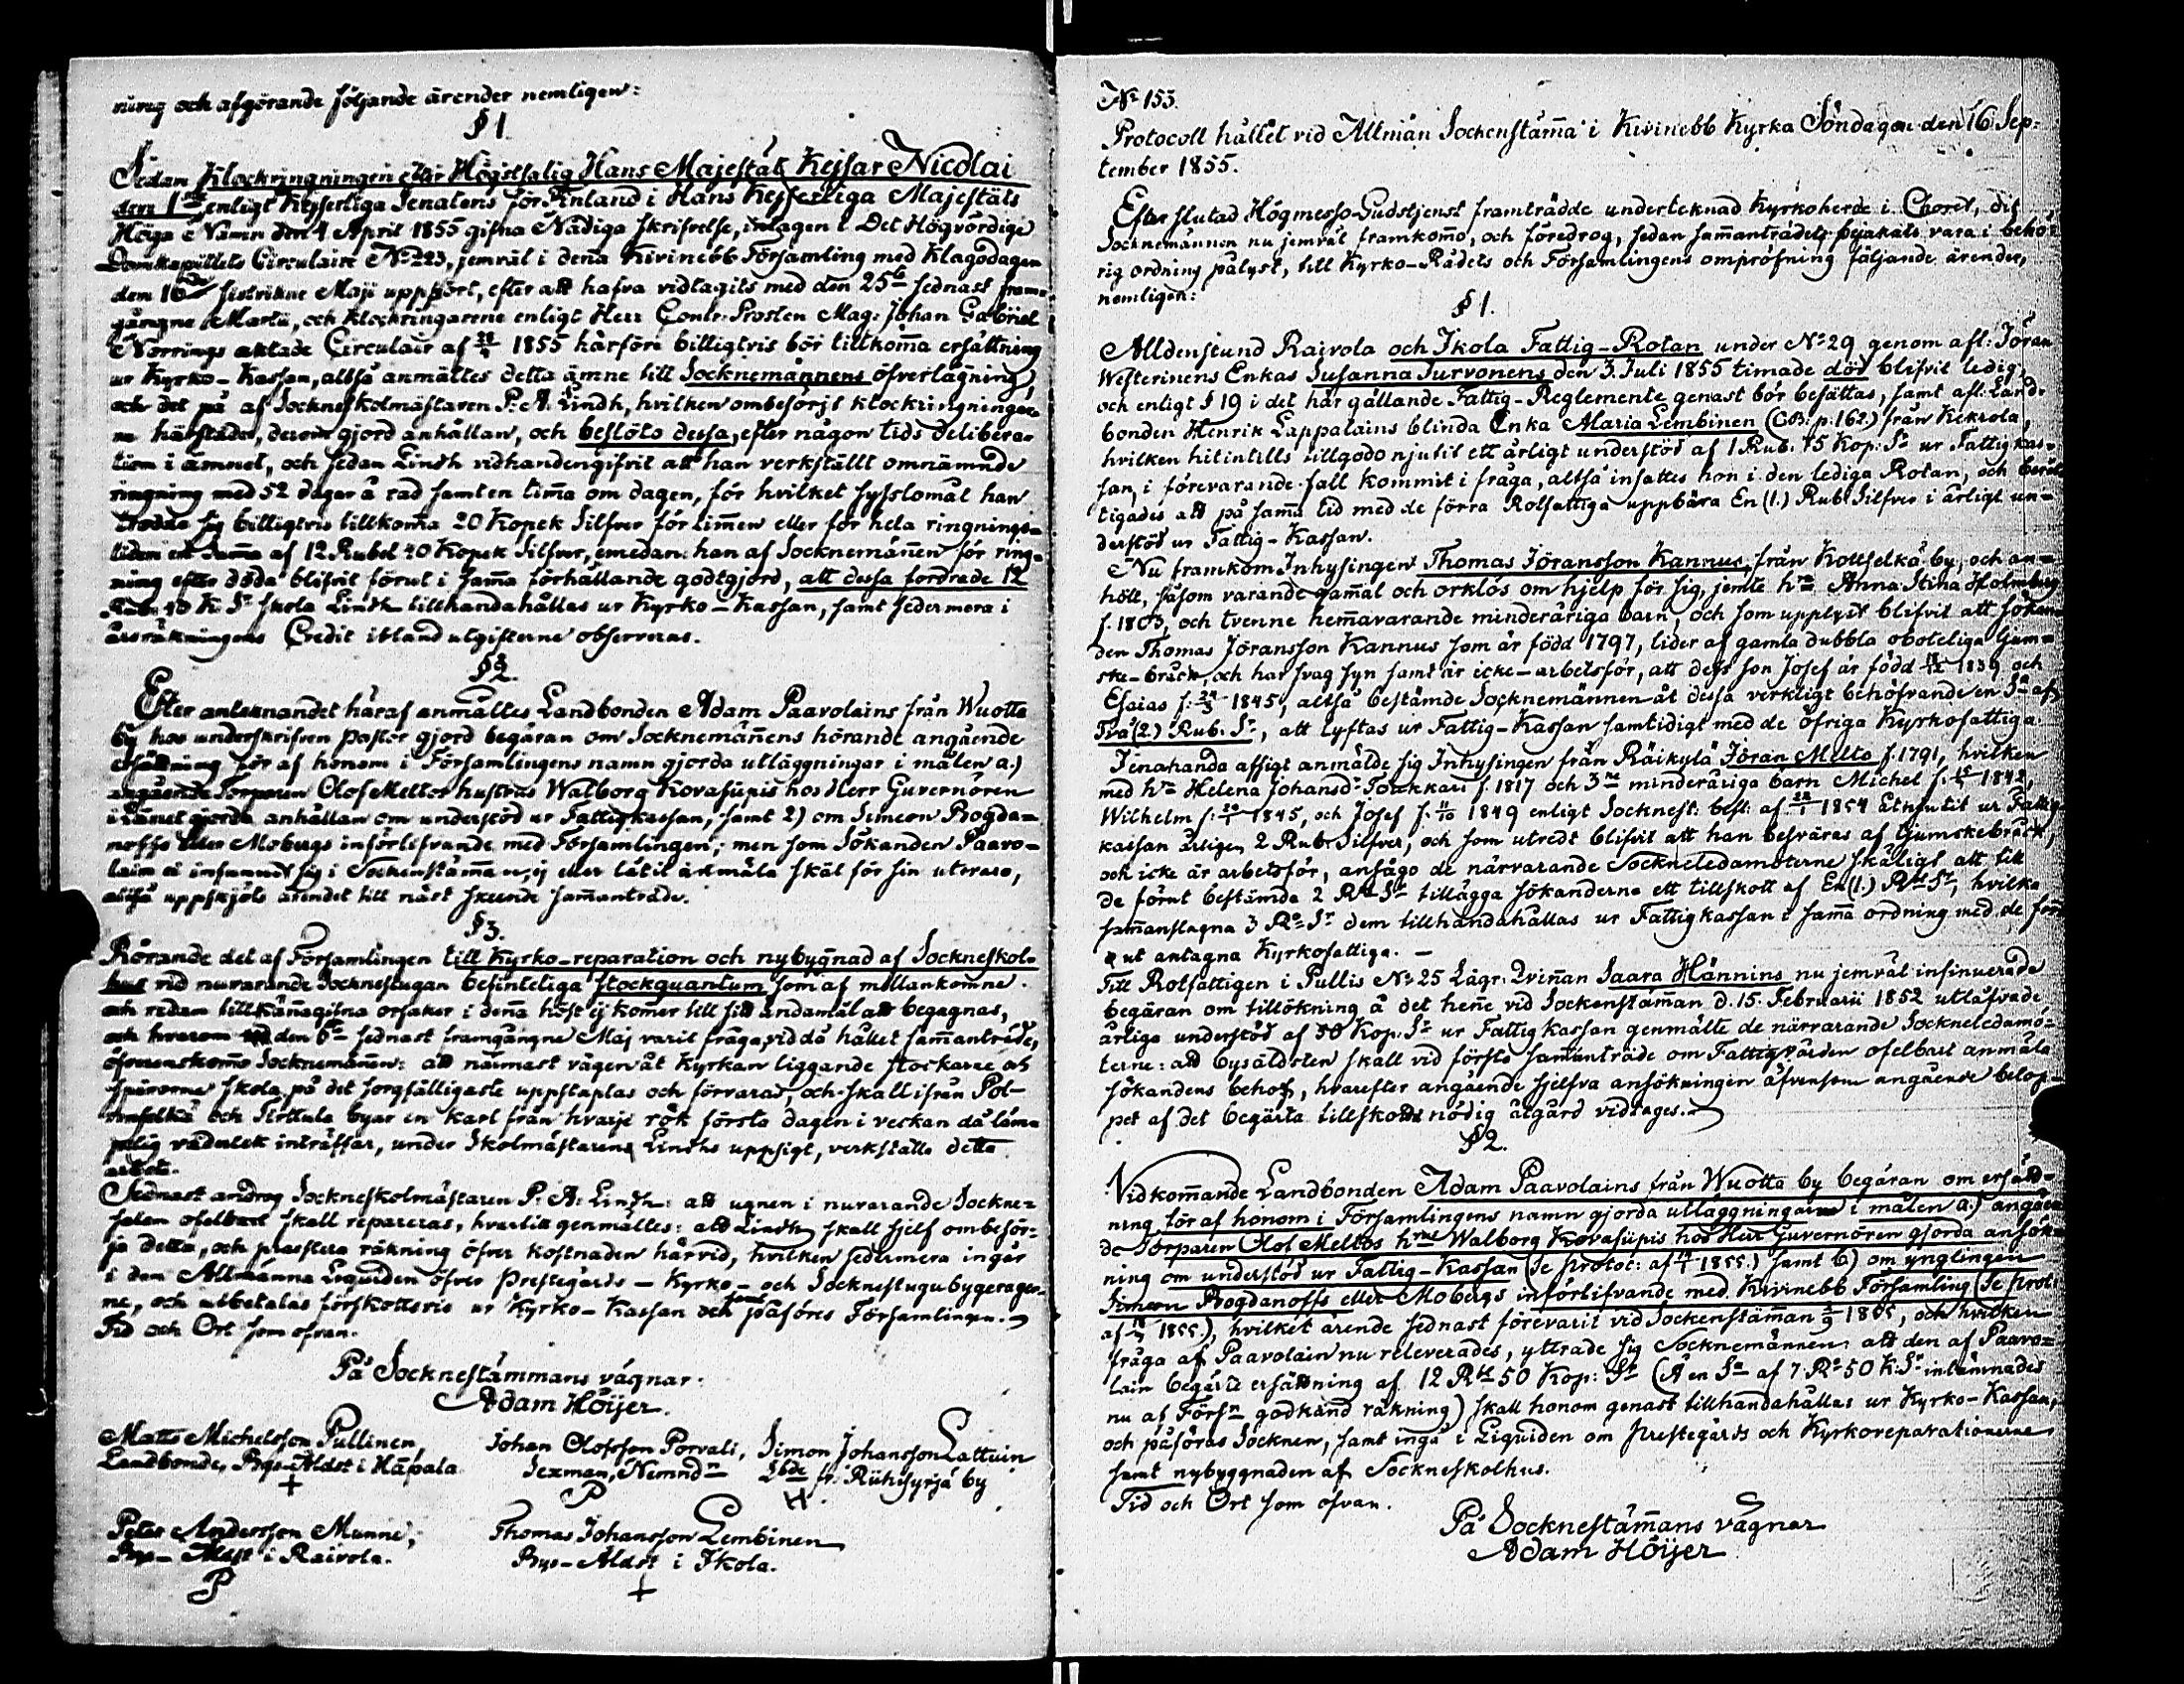 ning och afgörande följande ärender nemligen:
§ 1.
Sedan Klockringningen efter Högstsalig Hans Majestät Kejsar Nicolai
den 1ste enligt Kejserliga Senatens för Finland i Hans Kejserliga Majestäts
Höga Namn den 4 April 1855 gifna Nådiga skrifvelse, intagen i Det Högvördige
Domkapitlets Circulaire No 223, jemväl i denna Kivinebb Församling med Klagodagen
dem 16de sistvikne Maji upphört, efter att hafva vidtagits med den 25te sednast fram-
gångne Martii, och Klockringarene enligt Herr Contr. Prosten Mag: Johan Gabriel
Norrings aktade Circulair af 1855 härföre billigtvis bör tillkom̄a ersättning
ur Kyrko-Kassan, altså anmältes detta ämne till Socknemännens öfverlägning,
och det på af Sockneskolmästaren P. A. Lindh, hvilken ombesörjt klockringningar-
ne härstädes, derom gjord anhållan, och beslöto dessa, efter någon tids delibera-
tion i ämnet, och sedan Lindh vidhandengifvit att han verkställt omnämnde
ringning med 52 dagar å rad samt en tim̄a om dagen, för hvilket sysslomål han
trodde sig billigtvis tillkom̄a 20 Kopek Silfver för tim̄en eller för hela ringnings-
tiden en Sum̄a af 12 Rubel 40 Kopek Silfver, emedan han af Socknemän̄en för ring-
ning efter döda blifvit förut i sam̄a förhållande godtgjord, att dessa fordrade 12
Rub. 40 K. Sr skola Lindh tillhandahållas ur Kyrko-Kassan, samt sedermera i
årsräkningens Credit ibland utgifterne observeras.
§ 2.
Efter antecknandet häraf anmältes Landbonden Adam Paavolains från Wuotta
by hos underskrifven pastor gjord begäran om Socknemän̄ens hörande angående
ersättning för af honom i Församlingens namn gjorda utläggningar i målen a.)
angående Torparen Olof Meltos hustrus Walborg Kovasiipis hos Herr Guvernören
i Länet gjorda anhållan om understöd ur Fattigkassan, samt 2) om Simeon Bogda-
noffs eller Mobergs införlifvande med Församlingen; men som Sökanden Paavo-
lain ei infunnit sig i Sockenstäm̄an, ej eller låtit anmäla skäl för sin utevaro,
altså uppskjöts ärendet till näst skeende sam̄anträde.
§ 3.
Rörande det af Församlingen till Kyrko-reparation och nybygnad af Sockneskol-
hus vid nuvarande Socknestugan befinteliga stockquantum som af mellankomne
och redan tillkännagifna orsaker i den̄a höst ej kom̄er till sitt ändamål att begagnas,
och hvarom den 6te sednast framgångne Maj varit fråga, vid då hållet sam̄anträde,
öfverenskom̄o Socknemän̄en: att närmast vägen åt Kyrkan liggande stockarne och
spärrorne skola på det sorgfälligaste uppstaplas och förvaras, och skall ifrån Pol-
vinselkä och Siottula byar en karl från hvarje rök första dagen i veckan då läm-
plig väderlek inträffar, under Skolmästarens Lindhs uppsigt, verkställa detta
arbete.
Sednast androg Sockneskolmästaren P. A. Lindh: att ugnen i nuvarande Sockne-
salen ofelbart skall repareras, hvartill genmältes: att Lindh skall sjelf ombesör-
ja detta, och præstera räkning öfver kostnaden härvid, hvilken sedermera ingår
i den Allmänna Liquiden öfver Prestegårds- Kyrko- och Socknestugubygerager-
ne, och utbetalas förskottsvis ur Kyrko-Kassan samt påföres Församlingen.
Tid och Ort som ofvan.
På Socknestämmans vägnar.
Adam Höijer.
Matts Michelsson Pullinen, Landbonde, Bys-Äldst i Hapala +
Johan Olofsson Porvali, Sexman, Nemndn P
Simon Johansson Lattuin Lbde fr. Riihisyrjä by
Peter Andersson Munne, Bys-Äldst i Raivola. P
Thomas Johansson Lembinen Bys-Äldst i Ikola. +
No 153.
Protocoll hållet vid Allmän Sockenstäm̄a i Kivinebb Kyrka Söndagen den 16 Sep-
tember 1855.
Efter slutad Högmesso-Gudstjenst framträdde undertecknad Kyrkoherde i Choret, dit
Socknemännen nu jemväl framkom̄o, och föredrog, sedan sam̄anträdet påskats vara i behö-
rig ordning pålyst, till Kyrko-Rådets och Församlingens ompröfning följande ärender,
nemligen:
§ 1.
Alldenstund Raivola och Ikola Fattig-Rotan under No 29 genom afl: Jöran
Westerinens Enkas Susanna Turvonens den 3. Juli 1855 timade död blifvit ledig,
och enligt § 19 i det här gällande Fattig-Reglemente genast bör besättas, samt afl: Land-
bonden Henrik Lappalains blinda Enka Maria Lembinen (C.B. p. 162.) från Kekrola,
hvilken hitintills tillgodo njutit ett årligt understöd af 1 Rub. 75 Kop: Sr ur Fattigkas-
san, i förevarande fall kommit i fråga, altså insattes hon i den lediga Rotan, och berät-
tigades att på sam̄a tid med de förra Rotfattiga uppbära En (1.) Rub. Silfver i årligt un-
derstöd ur Fattig-Kassan.
Nu framkom Inhysingen Thomas Jöransson Kannus från Kottselkä by, och an-
höll, såsom varande gam̄al och orklös om hjelp för sig, jemte hru Anna Stina Holmberg
f. 1803, och tvenne hem̄avarande minderåriga barn, och som upplyst blifvit att sökan-
den Thomas Jöransson Kannus som är född 1797, lider af gamla dubbla oboteliga ljum-
ske-bråck, och har svag syn samt är icke-arbetsför, att dess son Josef är född 1839 och
Esaias f. 24/3 1845, altså bestämde Socknemännen åt dessa verkligt behöfvande en Sa af
Två (2) Rub. Sr, att lyftas ur Fattig-Kassan samtidigt med de öfriga Kyrkofattiga.
I enahanda afsigt anmälde sig Inhysingen från Räikylä Jöran Melto f. 1791, hvilken
med hru Helena Johansdr Toukkari f. 1817 och 3ne minderåriga barn Michel f. 1842,
Wilhelm f. 1845, och Josef f. 11/10 1849 enligt Socknest: besl: af 1854 åtnjutit ur Fattig-
kassan årligen 2 Rub. Silfver, och som utredt blifvit att han besväras af ljumskebråck,
och icke är arbetsför, ansågo de närvarande Sockneledamöterne skäligt att till
de förut bestämda 2 Rbl Sr tillägga sökanderne ett tillskott af En (1.) Rbl Sr, hvilka
sam̄anslagna 3 Ro Sr dem tillhandahållas ur Fattigkassan i sam̄a ordning med de för-
ut antagna Kyrkofattiga. —
Till Rotfattigen i Pullis No 25 Lägr: Qvin̄an Saara Hännins nu jemväl insinuerade
begäran om tillökning å det hen̄e vid Sockenstäm̄an d. 15. Februarii 1852 utlåfvade
årliga understöd af 50 Kop: Sr ur Fattigkassan genmälte de närvarande Sockneledamö-
terne: att bysäldsten skall vid första sam̄anträde om Fattigvården ofelbart anmäla
sökandens behof, hvarefter angående sjelfva ansökningen äfvensom angående belop-
pet af det begärta tillskottet nödig åtgärd vidtages.
§ 2.
Vidkom̄ande Landbonden Adam Paavolains från Wuotta by begäran om ersätt-
ning för af honom i Församlingens namn gjorda utläggningar i målen a.) angåen-
de Torparen Olof Meltos hrus Walborg Kovasiipis hos Herr Guvernören gjorda ansök-
ning om understöd ur Fattig-Kassan (Se protoc: af 1855.) samt b) om ynglingen
Simeon Bogdanoffs eller Mobergs införlifvande med Kivinebb Församling (Se prot:
af 1855.), hvilket ärende sednast förevarit vid Sockenstäm̄an 1855, och hvilken
fråga af Paavolain nu releverades, yttrade sig Socknemännen: att den af Paavo-
lain begärte ersättning af 12 Rbl 50 Kop: Sr (Å en Sa af 7 Ro 50 K. Sr inlämnades
nu af Försn godkänd räkning) skall honom genast tillhandahållas ur Kyrko-Kassan,
och påföras Socknen, samt ingå i Liquiden om Prestegårds och Kyrkoreparationerne
samt nybyggnaden af Sockneskolhus.
Tid och Ort som ofvan.
På Socknestäm̄ans vägnar
Adam Höijer